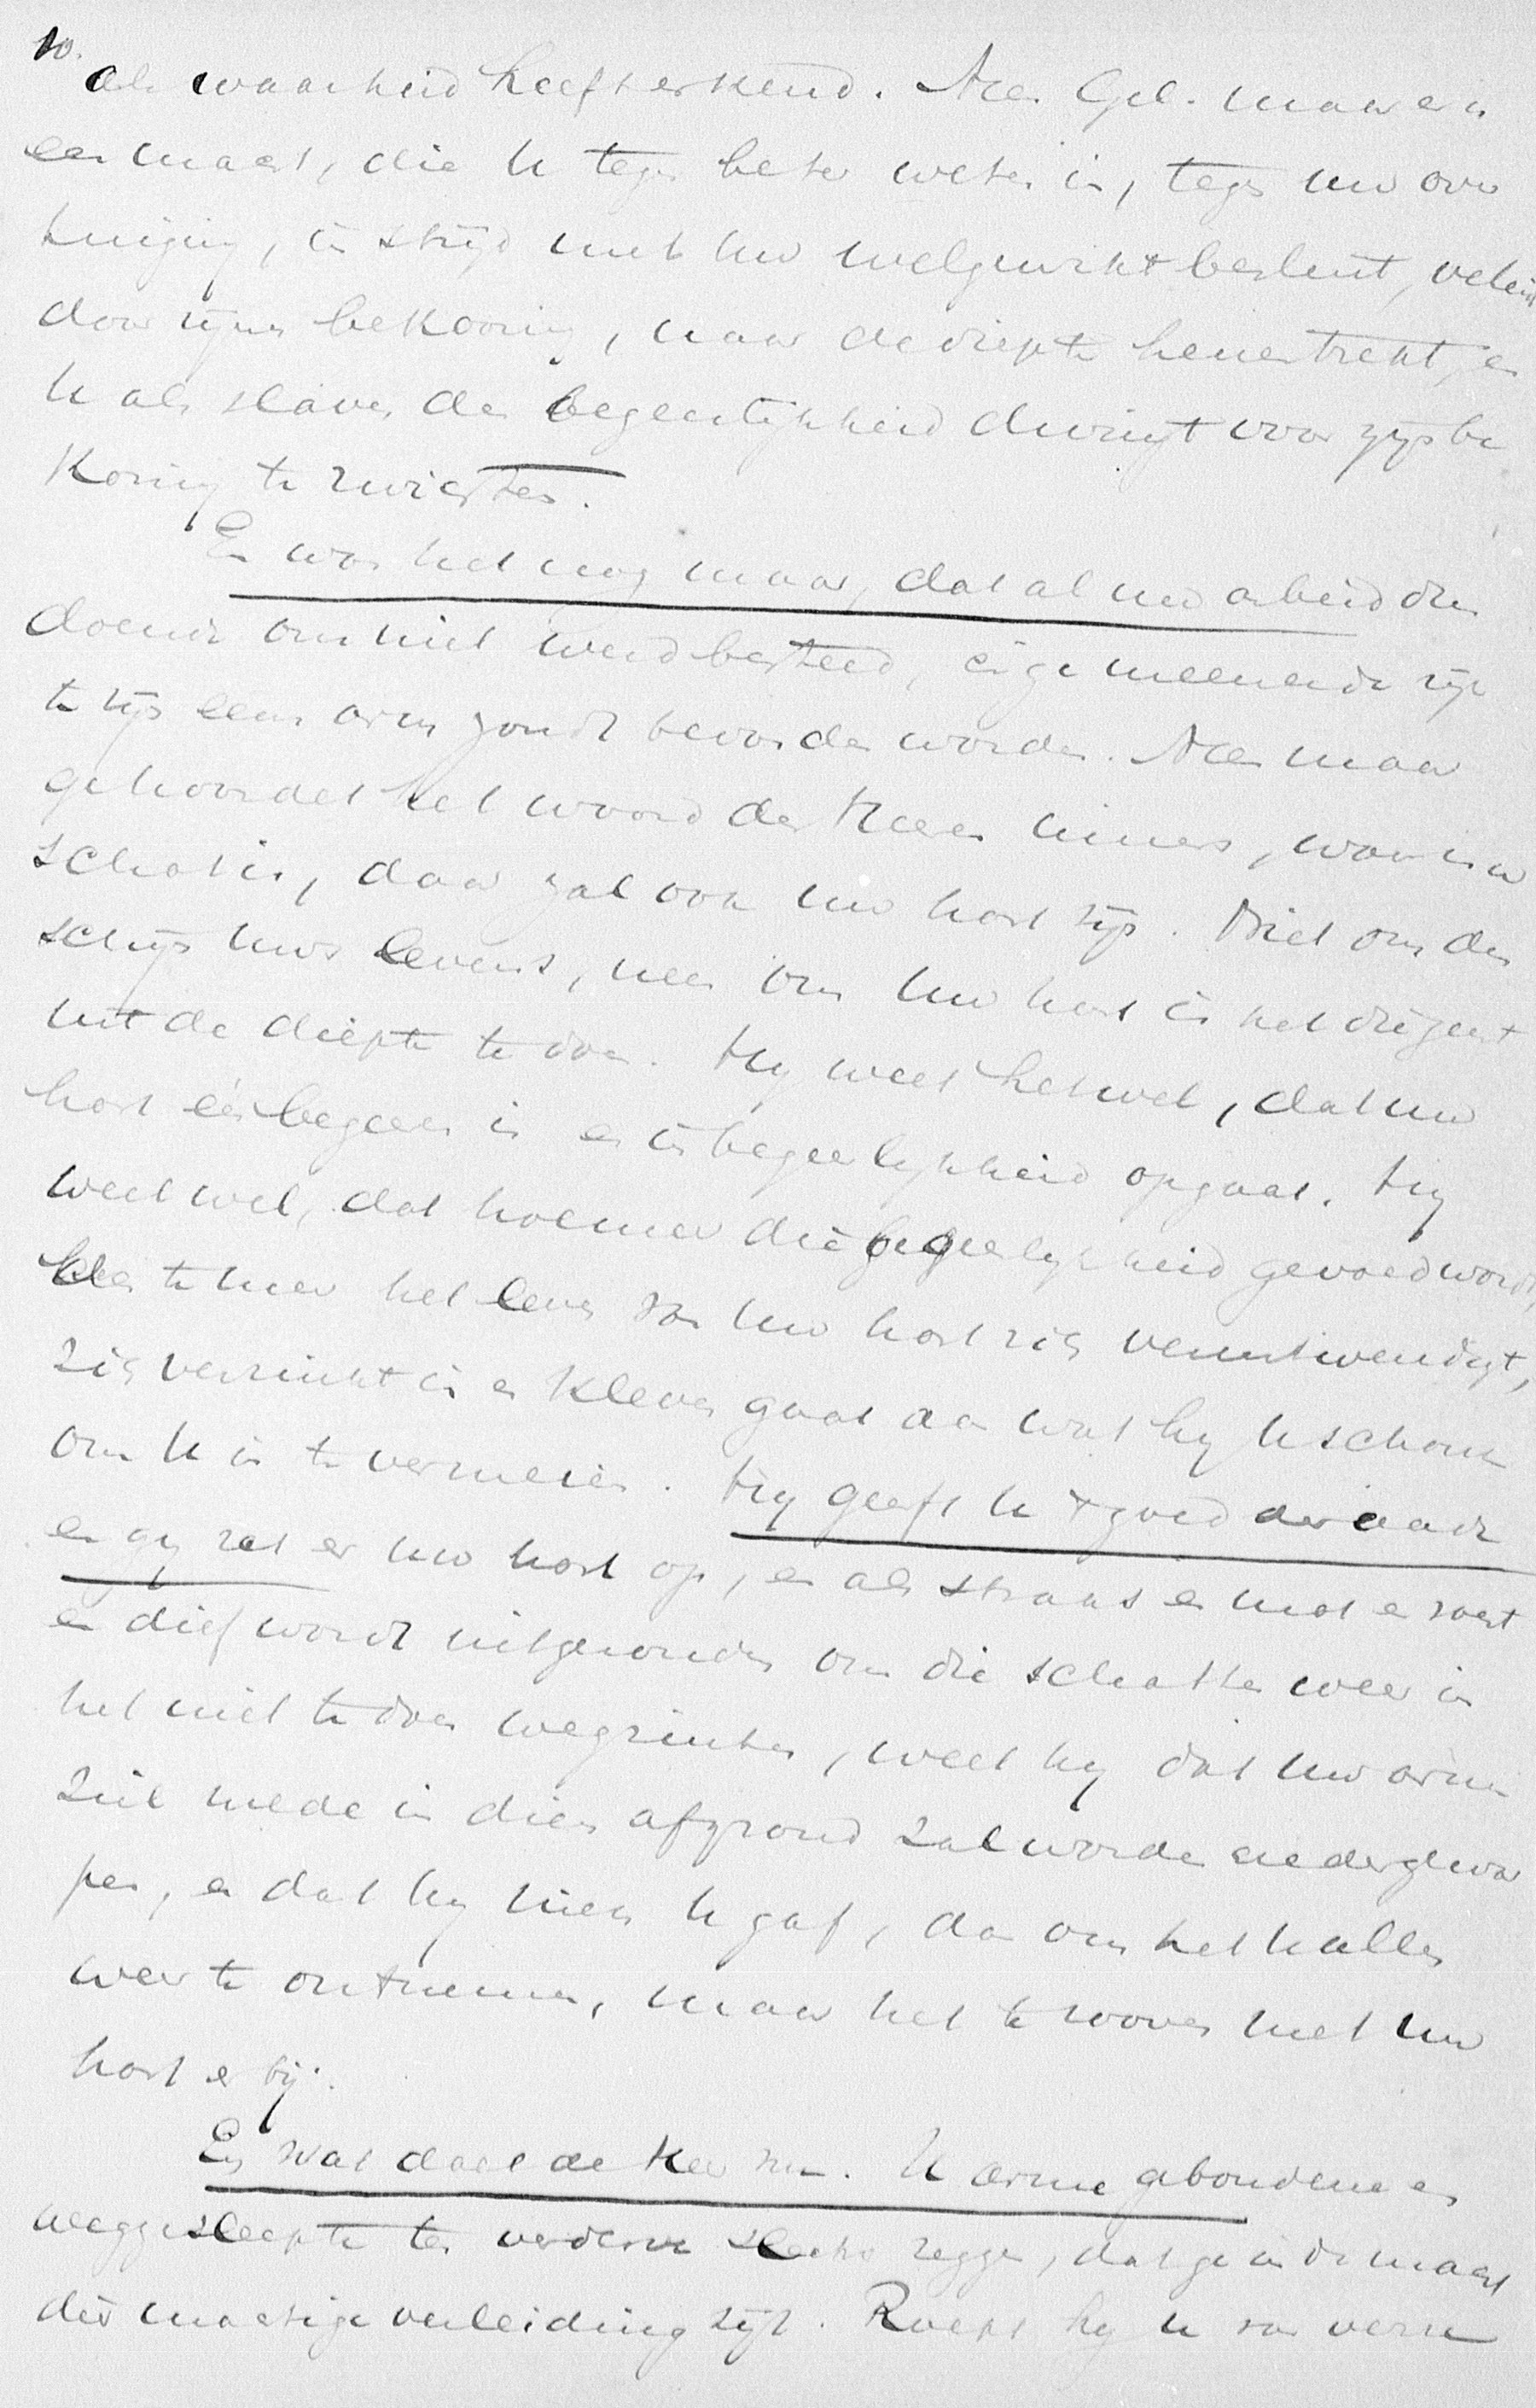 10.
als waarheid heeft erkend. Nee. Gel. maar er is
een macht, die u tegen beter weten in, tegen uw over
tuiging, in strijd met uw welgewikt besluit, verleid
door zijn bekooring, naar de diepte henentrekt, en
u als slaven der begeerlijkheid dwingt voor zijn be
koring te zwichten.
En was het nog maar, dat al uw arbeid dien
doende om niet werd besteed, en ge meenende rijk
te zijn eens arm zoudt bevonden worden. Neen maar
ge hoordet het woord des Heeren immers, waar uw
schat is, daar zal ook uw hart zijn. Niet om den
schijn uws levens, neen om uw hart is het dien geest
uit de diepte te doen. Hij weet het wel, dat uw
hart één begeeren is en in begeerlijkheid opgaat. Hij
weet wel, dat hoe meer die begeerlijkheid gevoed wordt,
des te meer het leven van uw hart zich veruitwendigt,
zich verzinkt in en kleven gaat aan wat hij u schonk
om u in te vermeien. Hij geeft u 't goed der aarde
en gij zet er uw hart op, en als straks en mot en roest
en dief wordt uitgezonden om die schatten weer in
het niet te doen wegzinken, weet hij dat uw arme
ziel mede in dien afgrond zal worden nedergewor
pen, en dat hij niets u gaf, dan om het u alles
weer te ontnemen, maar het te rooven met uw
hart er bij.
En wat doet de Heer nu. U arme gebondene en
weggesleepte ten verderve slechts zeggen, dat ge in de macht
dier machtige verleiding zijt. Roept hij u van verre